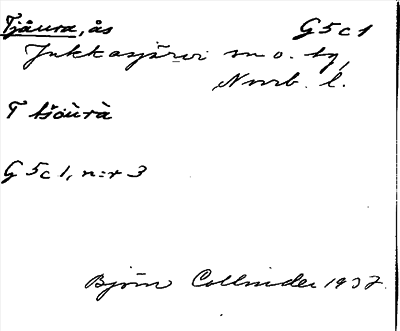 Tjåura, ås G5c1
Jukkasjärvi sn o. tg,
Norrb. l.
T
G5c1, n:r 3
Björn Collinder 1937.